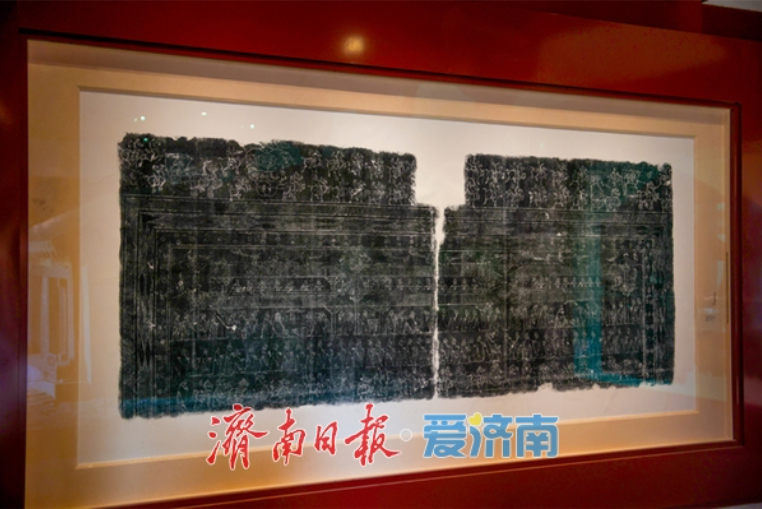 濟南日报·爱济南